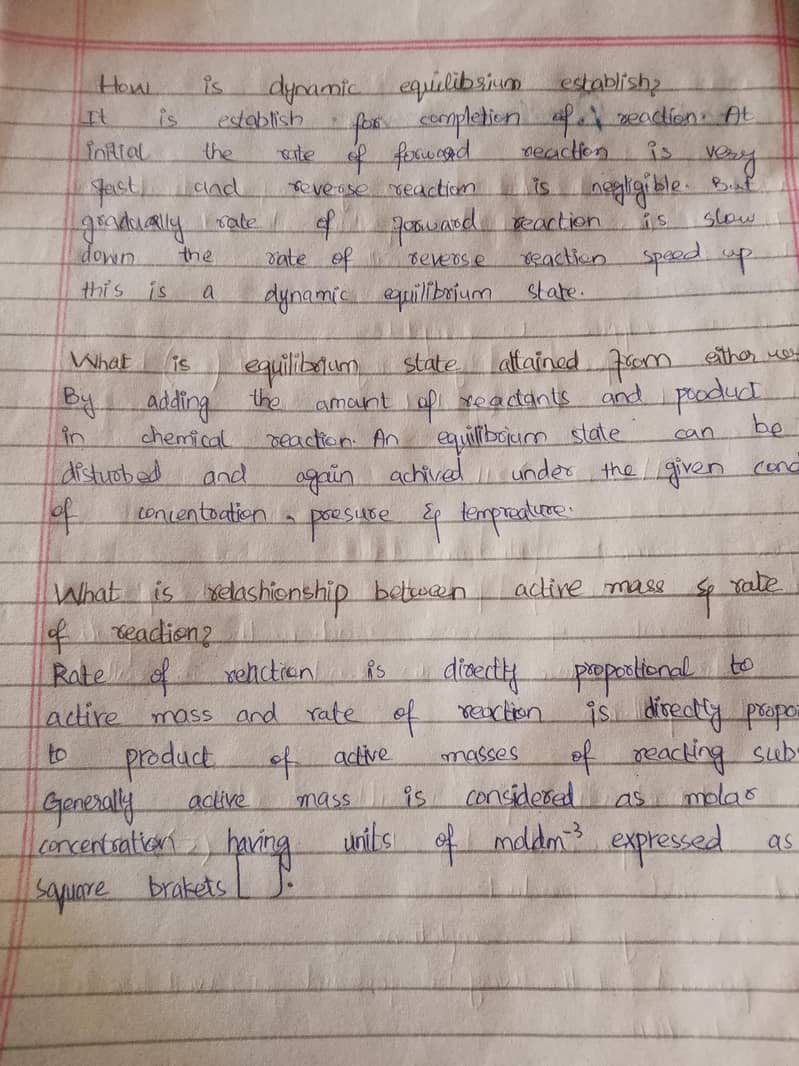 How is dynamic equilibsium establish?
It is establish for completion of reaction. At
initial the rate of forward reaction is very
fast and reverse reaction is negligible. But
gradually rate of forward reaction is slow
down the rate of reverse reaction speed up
this is a dynamic equilibrium state.
What is equilibrium state attained from either
By adding the amount of reactants and product
in chemical reaction. An equilibrium state can be
disturbed and again achived under the given cond
of concentration, presure & tempreature.
What is relashionship between active mass & rate
of reaction?
Rate of reaction is directly proportional to
active mass and rate of reaction is directly propo
to product of active masses of reacting sub
Generally active mass is considered as molar
concentration having units of moldm⁻³ expressed as
square brakets [ ].